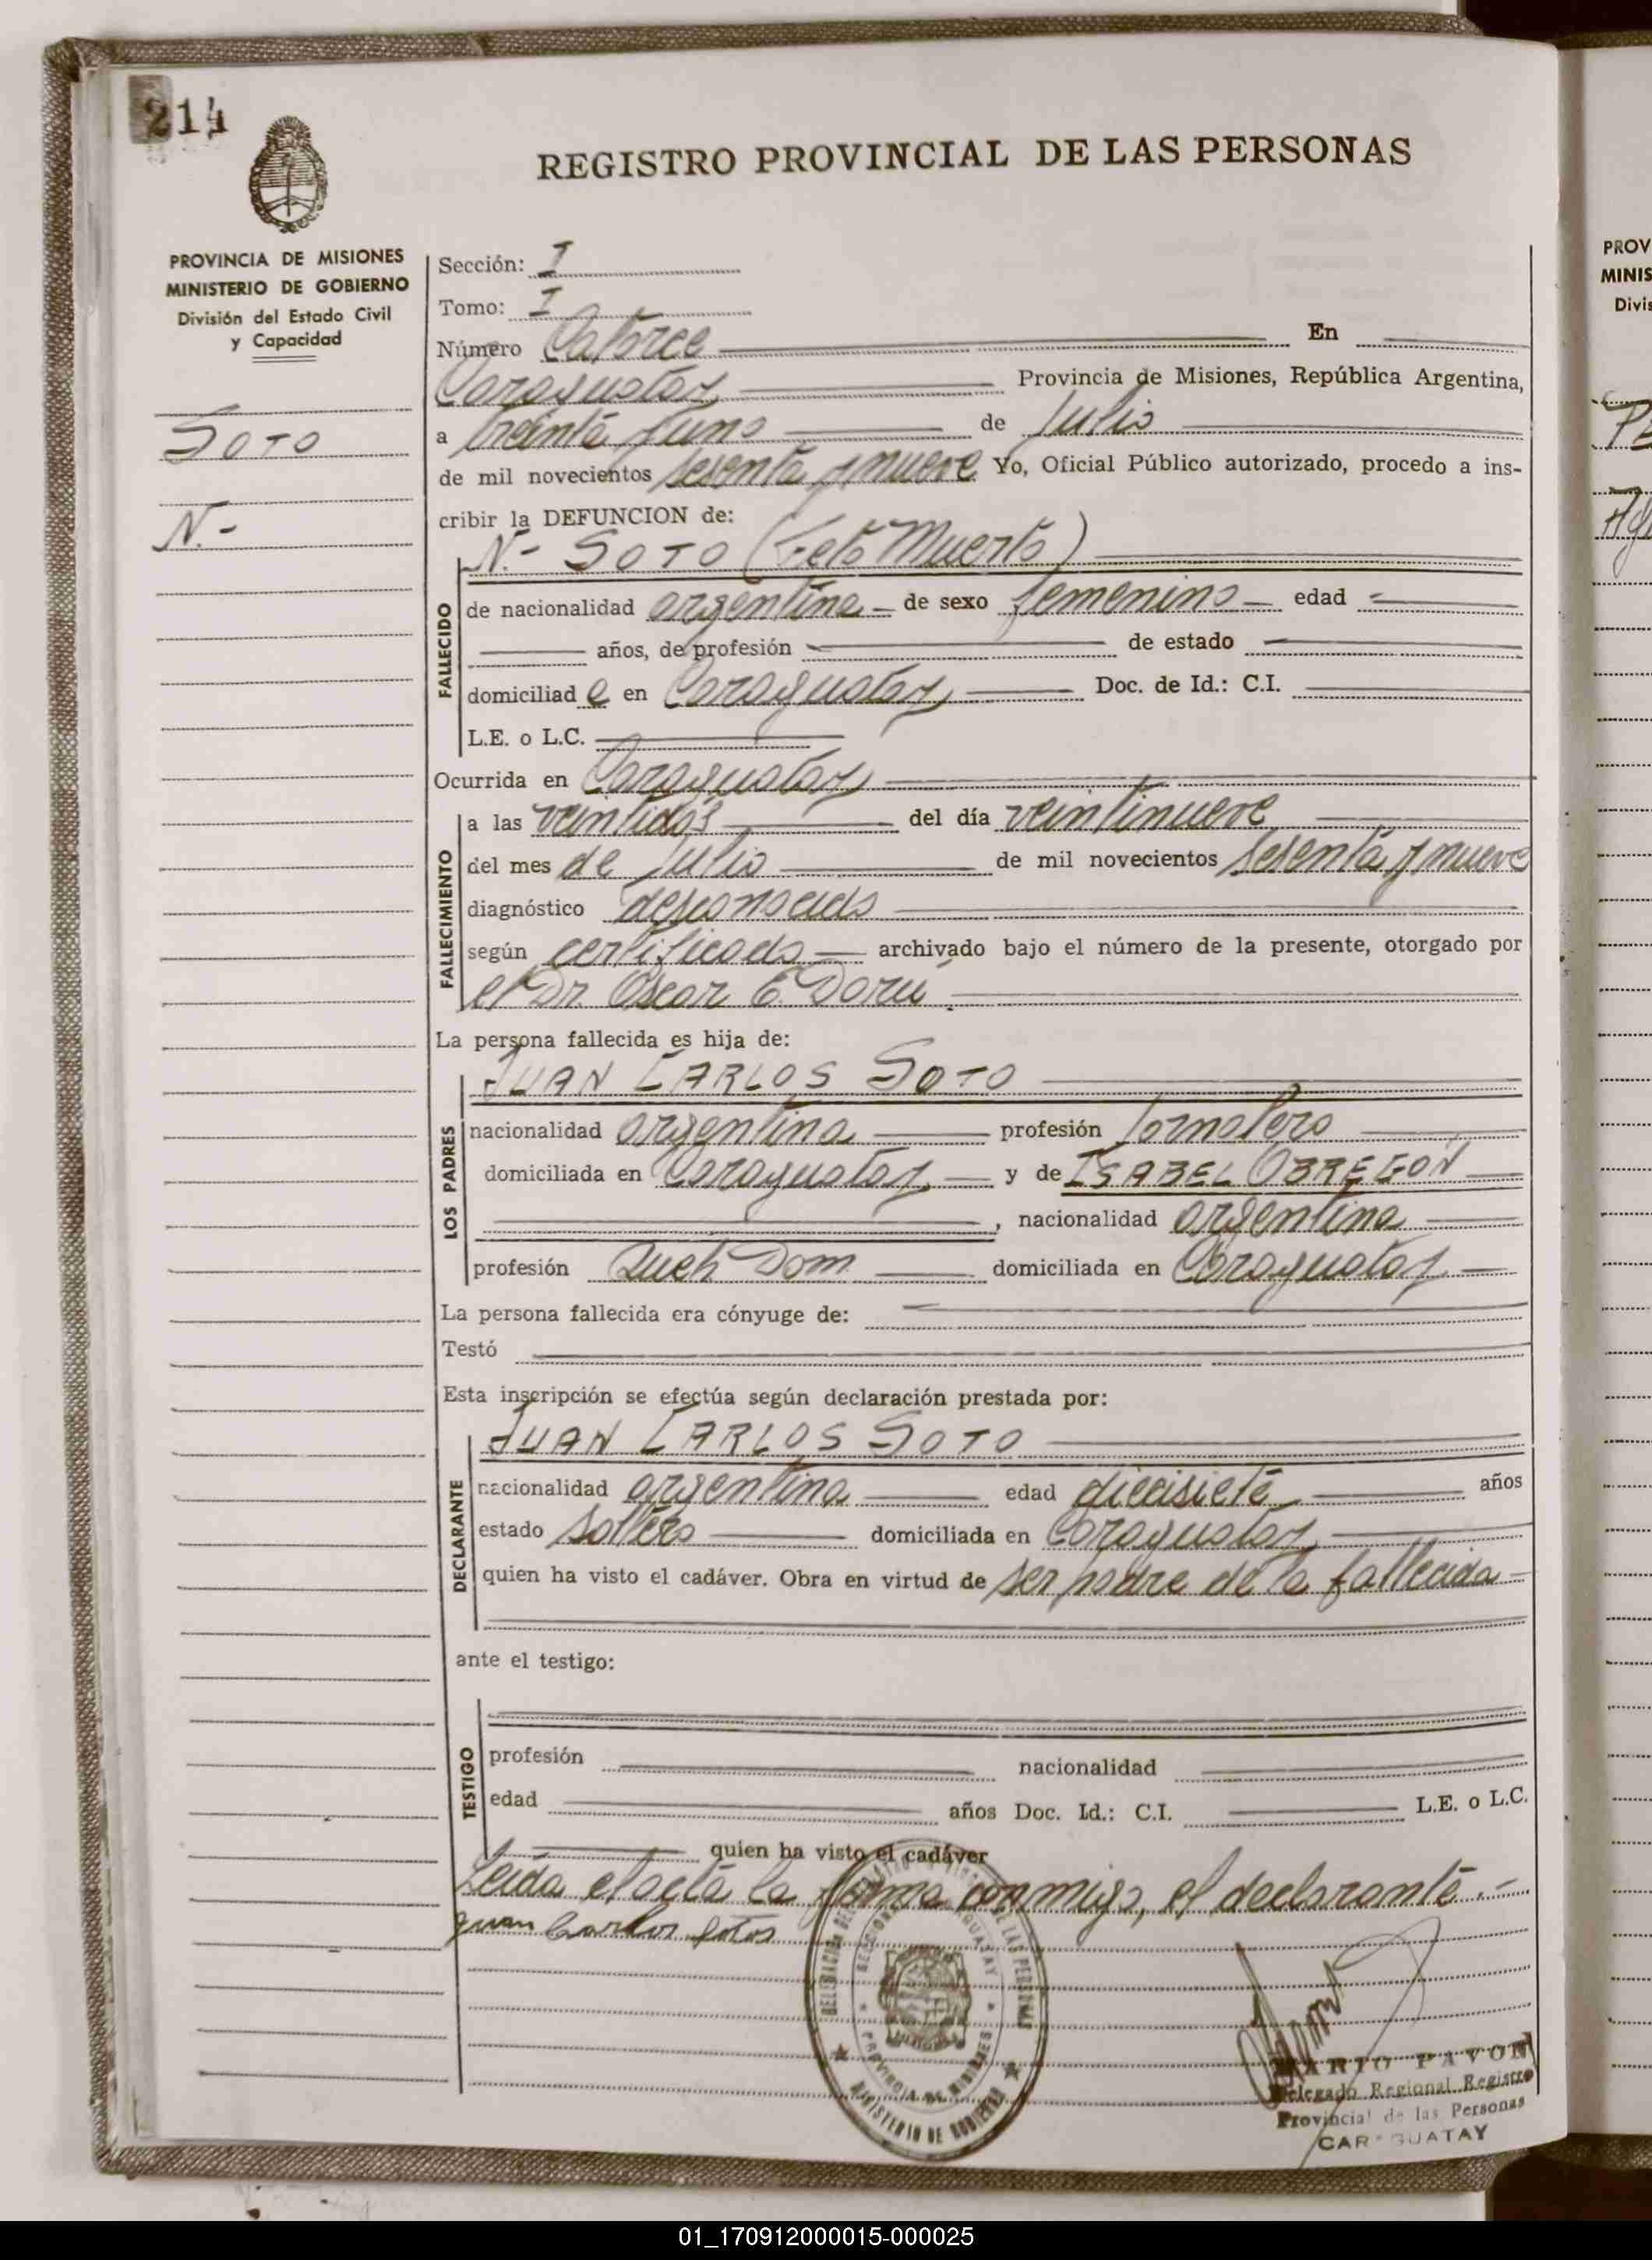 214
REGISTRO PROVINCIAL DE LAS PERSONAS
PROVINCIA DE MISIONES
MINISTERIO DE GOBIERNO
División del Estado Civil
y Capacidad
SOTO
N.-
Sección: I
Tomo: I
Número Catorce En
Caraguatay Provincia de Misiones, República Argentina,
a treinta y uno de Julio
de mil novecientos sesenta y nueve Yo, Oficial Público autorizado, procedo a ins-
cribir la DEFUNCION de:
N.- SOTO (Feto Muerto)
FALLECIDO
de nacionalidad argentina de sexo femenino edad
años, de profesión de estado
domiciliad a en Caraguatay Doc. de Id.: C.I.
L.E. o L.C.
Ocurrida en Caraguatay
FALLECIMIENTO
a las veintidos del día veintinueve
del mes de Julio de mil novecientos sesenta y nueve
diagnóstico desconocido
según certificado archivado bajo el número de la presente, otorgado por
el Dr. Oscar E. Doru
La persona fallecida es hija de:
LOS PADRES
JUAN CARLOS SOTO
nacionalidad argentina profesión Jornalero
domiciliada en Caraguatay y de ISABEL OBREGON
, nacionalidad argentina
profesión Queh Dom domiciliada en Caraguatay
La persona fallecida era cónyuge de:
Testó
Esta inscripción se efectúa según declaración prestada por:
DECLARANTE
JUAN CARLOS SOTO
nacionalidad argentina edad diecisiete años
estado soltero domiciliada en Caraguatay
quien ha visto el cadáver. Obra en virtud de ser padre de la fallecida
ante el testigo:
TESTIGO
profesión nacionalidad
edad años Doc. Id.: C.I. L.E. o L.C.
quien ha visto el cadáver
Leída el acta la firma conmigo, el declarante.-
Juan Carlos Sotos
PROVINCIA DE MISIONES
MINISTERIO DE GOBIERNO
MARIO PAVON
Delegado Regional Registro
Provincial de las Personas
CARAGUATAY
PROV
MINIS
Divis
01_170912000015-000025